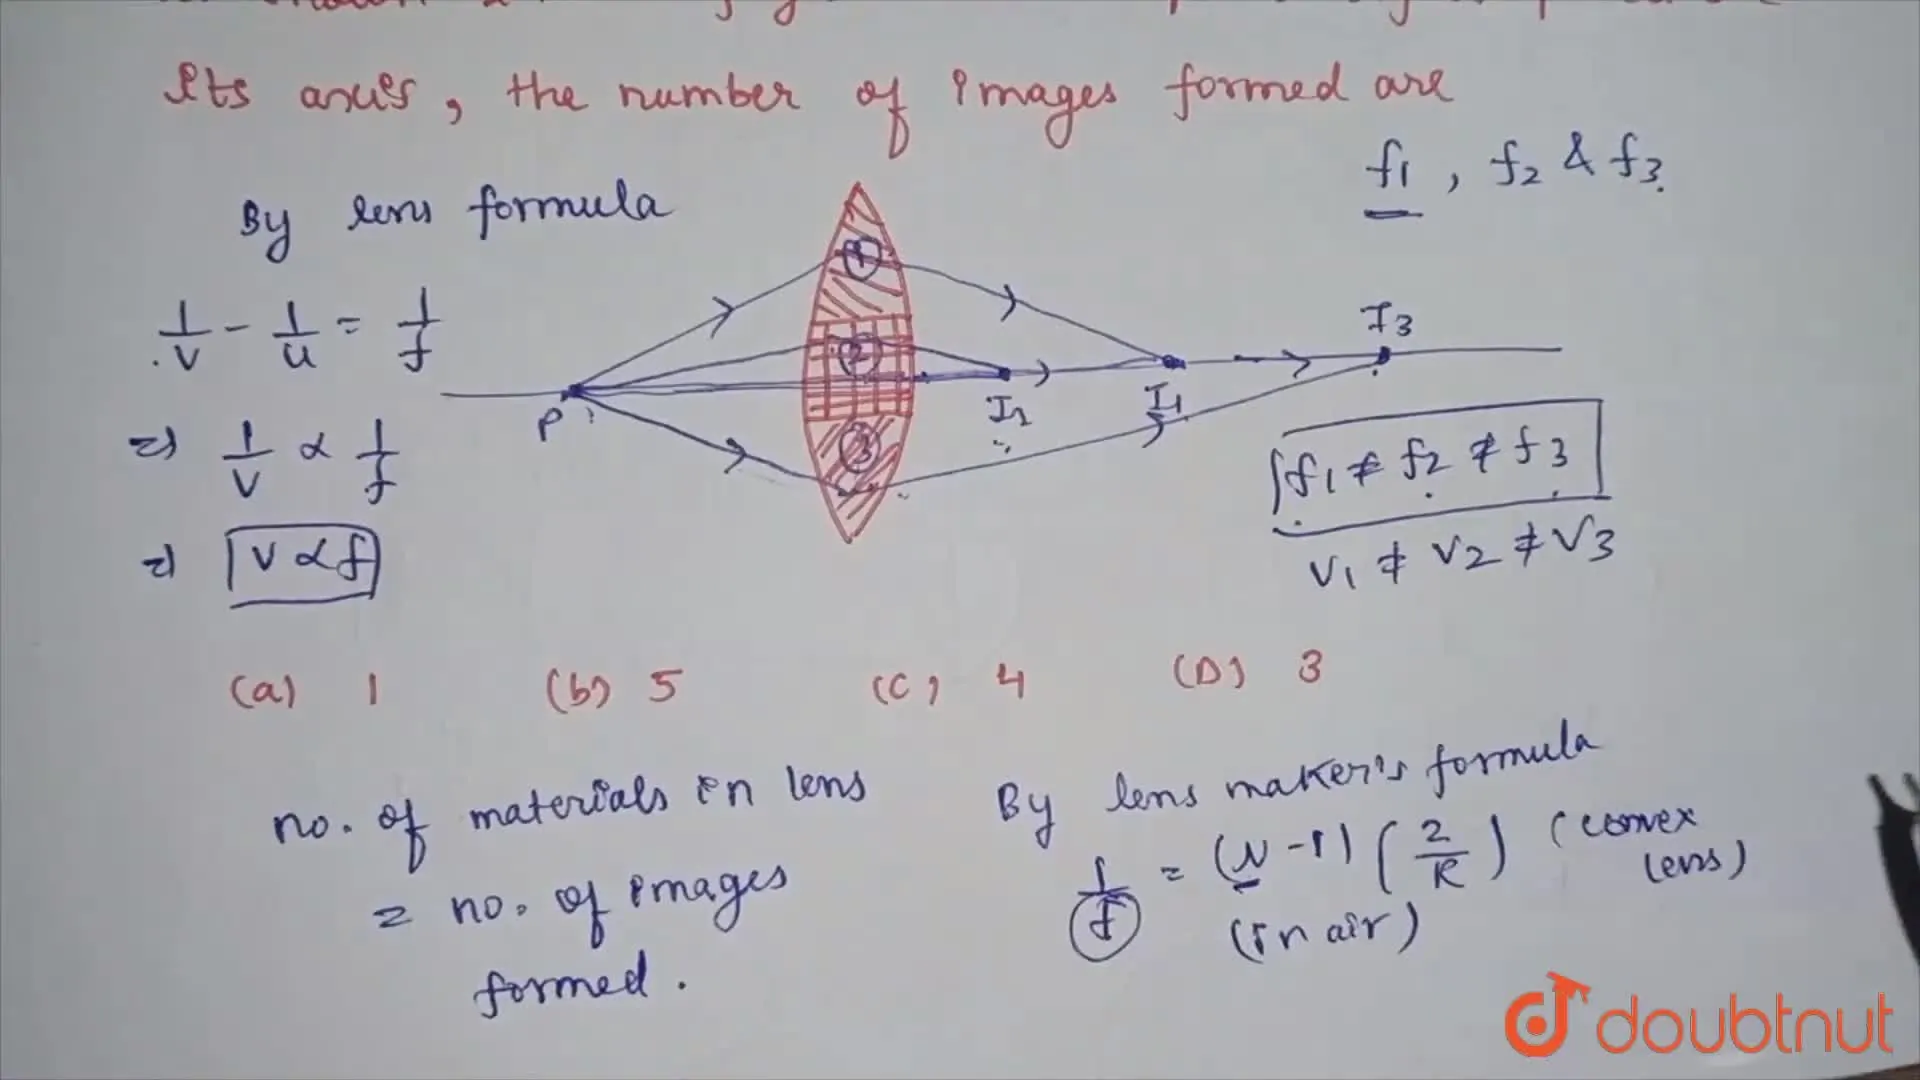 Its axis, the number of images formed are
f1, f2 & f3
By lens formula
1/v - 1/u = 1/f
=) 1/v ∝ 1/f
=) v ∝ f
1
2
3
P
I2
I1
I3
f1 ≠ f2 ≠ f3
v1 ≠ v2 ≠ v3
(a) 1 (b) 5 (C) 4 (D) 3
no. of materials in lens
= no. of images
formed.
By lens maker's formula
1/f = (μ-1) (2/R) (convex lens)
(in air)
doubtnut